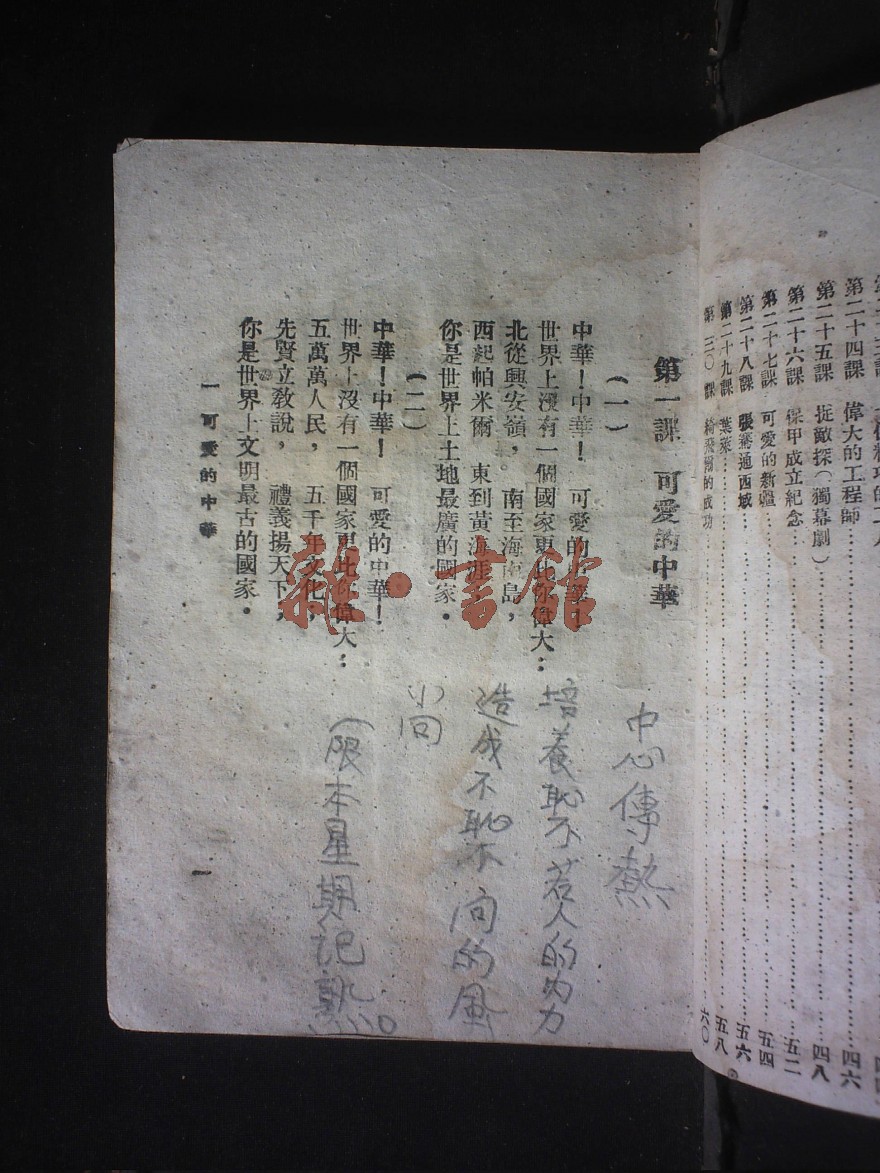 第二十四課 偉大的工程師 四六
第二十五課 捉敵探(獨幕劇) 四八
第二十六課 保甲成立紀念 五二
第二十七課 可愛的新疆 五四
第二十八課 張騫通西域 五六
第二十九課 葉萊 五八
第三〇課 的成功 六〇
第一課 可愛的中華
(一)
中華!中華! 可愛的中華!
世界上沒有一個國家更比你偉大:
北從興安嶺, 南至海南島,
西起帕米爾 東到黃海涯,
你是世界上土地最廣的國家.
(二)
中華!中華! 可愛的中華!
世界上沒有一個國家更比你偉大:
五萬萬人民, 五千年文化,
先賢立敎說, 禮義揚天下,
你是世界上文明最古的國家.
一 可愛的中華
一
中心傳熱
培養恥不若人的
造成不恥不向的風
小向
(限本星期記熟
雜·書館